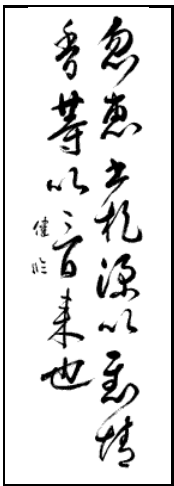 忽惠書札深以慰情
香等以百来也
健临